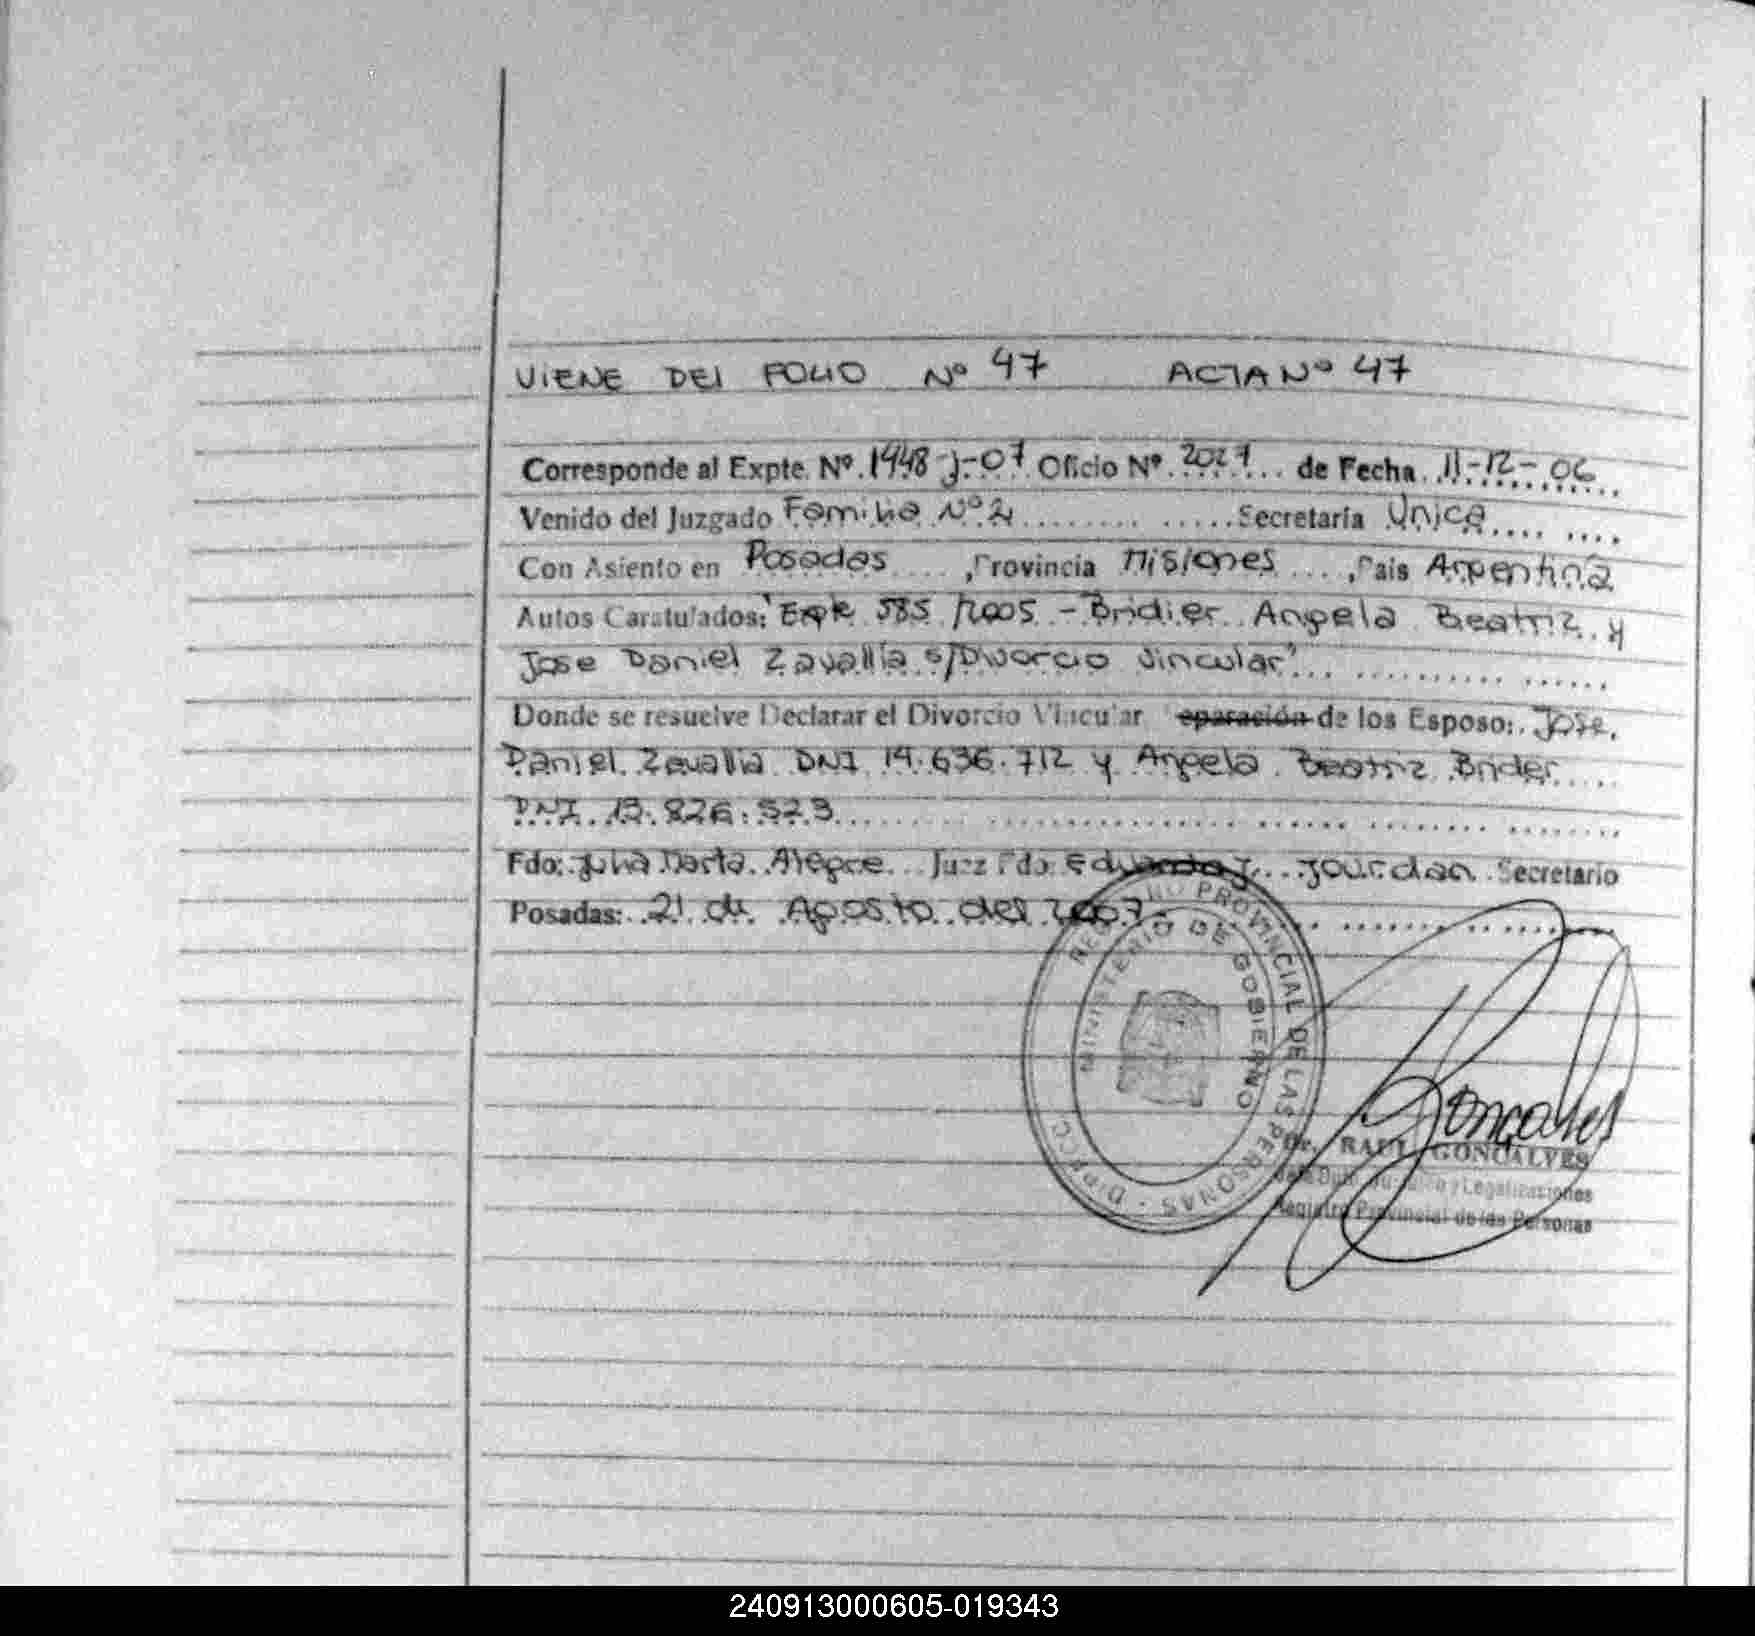 VIENE DEL FOLIO Nº 47 ACTA Nº 47
Corresponde al Expte. Nº. 1948-J-07 Oficio Nº. 2027... de Fecha. 11-12-06
Venido del Juzgado Familia Nº 2 ............Secretaria Unica.... ....
Con Asiento en Posadas ...., Provincia Misiones ...., Pais Argentina
Autos Caratulados: "Expte 585/2005 - Bridier Angela Beatriz y
Jose Daniel Zavallia s/Divorcio Vincular"
Donde se resuelve Declarar el Divorcio Vincular eparación de los Esposo:. Jose
Daniel Zavallia DNI 14.636.712 y Angela Beatriz Bridier
DNI 13.826.523
Fdo: Julia Marta Alegre... Juez Fdo: Eduardo J... Jourdan Secretario
Posadas: 21 de Agosto del 2007.
PROVINCIAL DE LAS PERSONAS
MINISTERIO DE GOBIERNO
Goncalves
Dr. RAUL GONCALVES
y Legalizaciones
Registro Provincial de las Personas
240913000605-019343